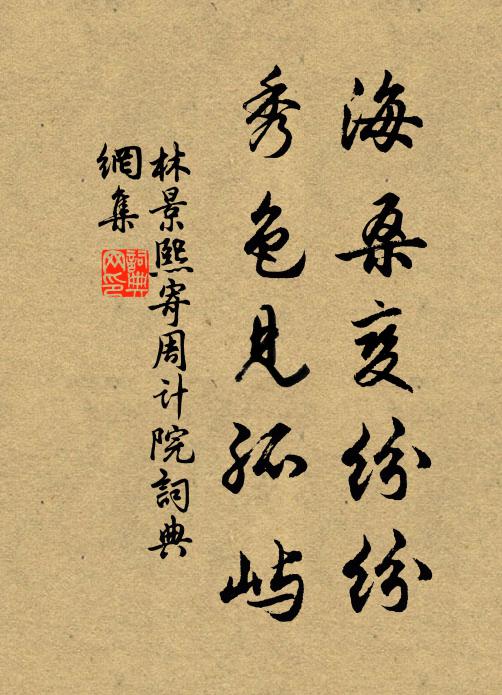 海桑变纷纷
秀色見孤屿
林景熙寄周计院詞典
網集
詞典网印